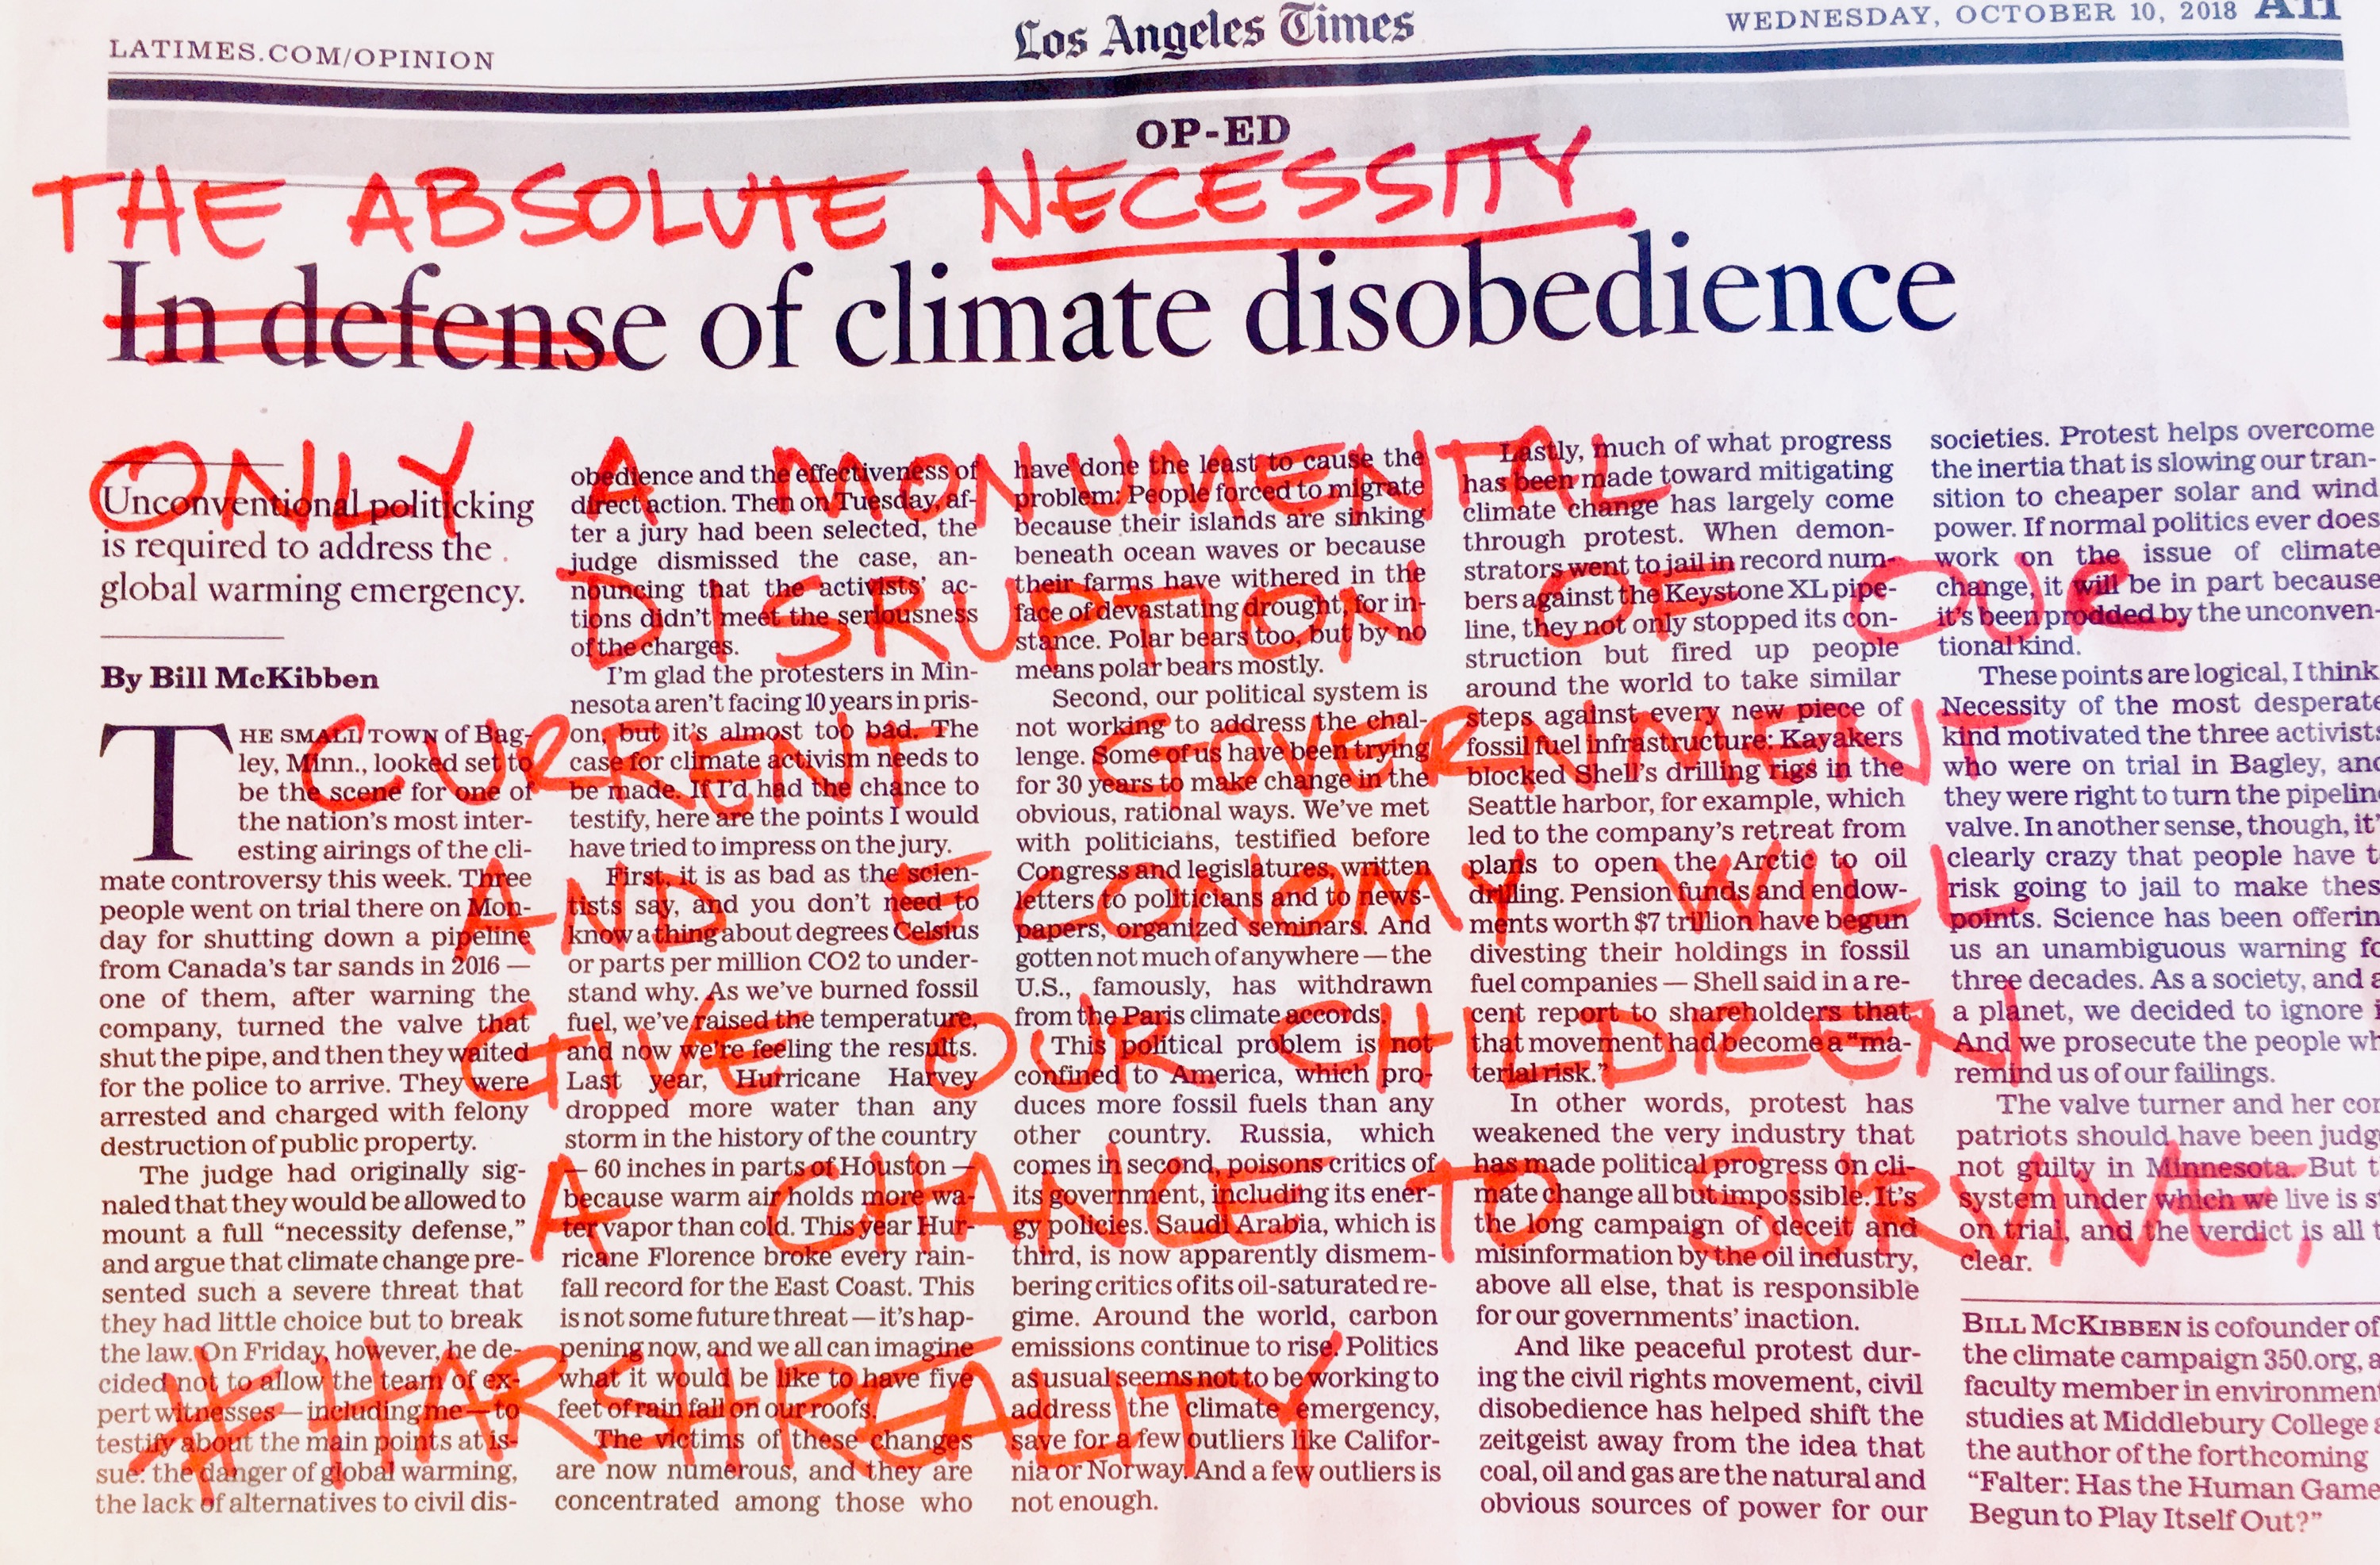 LATIMES.COM/OPINION
Los Angeles Times
WEDNESDAY, OCTOBER 10, 2018 A11
OP-ED
THE ABSOLUTE NECESSITY
In defense of climate disobedience
ONLY A MONUMENTAL
DISRUPTION OF OUR
CURRENT GOVERNMENT
AND ECONOMY WILL
GIVE OUR CHILDREN
A CHANCE TO SURVIVE,
#HARSHREALITY
Unconventional politicking
is required to address the
global warming emergency.
By Bill McKibben
THE SMALL TOWN of Bag-
ley, Minn., looked set to
be the scene for one of
the nation's most inter-
esting airings of the cli-
mate controversy this week. Three
people went on trial there on Mon-
day for shutting down a pipeline
from Canada's tar sands in 2016 —
one of them, after warning the
company, turned the valve that
shut the pipe, and then they waited
for the police to arrive. They were
arrested and charged with felony
destruction of public property.
The judge had originally sig-
naled that they would be allowed to
mount a full “necessity defense,”
and argue that climate change pre-
sented such a severe threat that
they had little choice but to break
the law. On Friday, however, he de-
cided not to allow the team of ex-
pert witnesses — including me — to
testify about the main points at is-
sue: the danger of global warming,
the lack of alternatives to civil dis-
obedience and the effectiveness of
direct action. Then on Tuesday, af-
ter a jury had been selected, the
judge dismissed the case, an-
nouncing that the activists' ac-
tions didn't meet the seriousness
of the charges.
I'm glad the protesters in Min-
nesota aren't facing 10 years in pris-
on, but it's almost too bad. The
case for climate activism needs to
be made. If I'd had the chance to
testify, here are the points I would
have tried to impress on the jury.
First, it is as bad as the scien-
tists say, and you don't need to
know a thing about degrees Celsius
or parts per million CO2 to under-
stand why. As we've burned fossil
fuel, we've raised the temperature,
and now we're feeling the results.
Last year, Hurricane Harvey
dropped more water than any
storm in the history of the country
— 60 inches in parts of Houston —
because warm air holds more wa-
ter vapor than cold. This year Hur-
ricane Florence broke every rain-
fall record for the East Coast. This
is not some future threat — it's hap-
pening now, and we all can imagine
what it would be like to have five
feet of rain fall on our roofs.
The victims of these changes
are now numerous, and they are
concentrated among those who
have done the least to cause the
problem: People forced to migrate
because their islands are sinking
beneath ocean waves or because
their farms have withered in the
face of devastating drought, for in-
stance. Polar bears too, but by no
means polar bears mostly.
Second, our political system is
not working to address the chal-
lenge. Some of us have been trying
for 30 years to make change in the
obvious, rational ways. We've met
with politicians, testified before
Congress and legislatures, written
letters to politicians and to news-
papers, organized seminars. And
gotten not much of anywhere — the
U.S., famously, has withdrawn
from the Paris climate accords.
This political problem is not
confined to America, which pro-
duces more fossil fuels than any
other country. Russia, which
comes in second, poisons critics of
its government, including its ener-
gy policies. Saudi Arabia, which is
third, is now apparently dismem-
bering critics of its oil-saturated re-
gime. Around the world, carbon
emissions continue to rise. Politics
as usual seems not to be working to
address the climate emergency,
save for a few outliers like Califor-
nia or Norway. And a few outliers is
not enough.
Lastly, much of what progress
has been made toward mitigating
climate change has largely come
through protest. When demon-
strators went to jail in record num-
bers against the Keystone XL pipe-
line, they not only stopped its con-
struction but fired up people
around the world to take similar
steps against every new piece of
fossil fuel infrastructure: Kayakers
blocked Shell's drilling rigs in the
Seattle harbor, for example, which
led to the company's retreat from
plans to open the Arctic to oil
drilling. Pension funds and endow-
ments worth $7 trillion have begun
divesting their holdings in fossil
fuel companies — Shell said in a re-
cent report to shareholders that
that movement had become a “ma-
terial risk.”
In other words, protest has
weakened the very industry that
has made political progress on cli-
mate change all but impossible. It's
the long campaign of deceit and
misinformation by the oil industry,
above all else, that is responsible
for our governments' inaction.
And like peaceful protest dur-
ing the civil rights movement, civil
disobedience has helped shift the
zeitgeist away from the idea that
coal, oil and gas are the natural and
obvious sources of power for our
societies. Protest helps overcome
the inertia that is slowing our tran-
sition to cheaper solar and wind
power. If normal politics ever does
work on the issue of climate
change, it will be in part because
it's been prodded by the unconven-
tional kind.
These points are logical, I think.
Necessity of the most desperate
kind motivated the three activists
who were on trial in Bagley, and
they were right to turn the pipeline
valve. In another sense, though, it's
clearly crazy that people have
risk going to jail to make these
points. Science has been offering
us an unambiguous warning
three decades. As a society, and
a planet, we decided to ignore
And we prosecute the people
remind us of our failings.
The valve turner and her
patriots should have been
not guilty in Minnesota. But
system under which we live is
on trial, and the verdict is all
clear.
BILL MCKIBBEN is cofounder of
the climate campaign 350.org,
faculty member in
studies at Middlebury College
the author of the forthcoming
“Falter: Has the Human Game
Begun to Play Itself Out?”